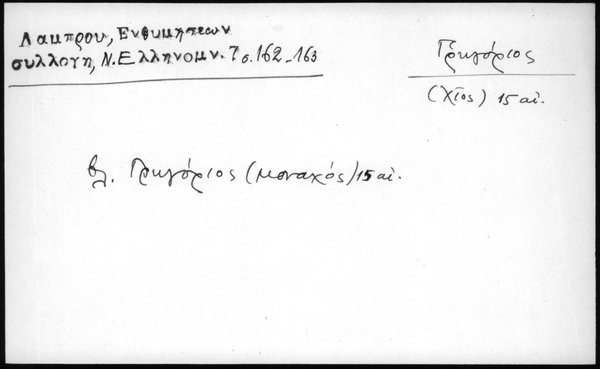 Λαμπρου, Ενθυμησεων
συλλογη, Ν. Ελληνομν. 7 σ. 162-163
Γρηγόριος
(Χῖος) 15 αἰ.
βλ. Γρηγόριος (μοναχός) 15 αἰ.